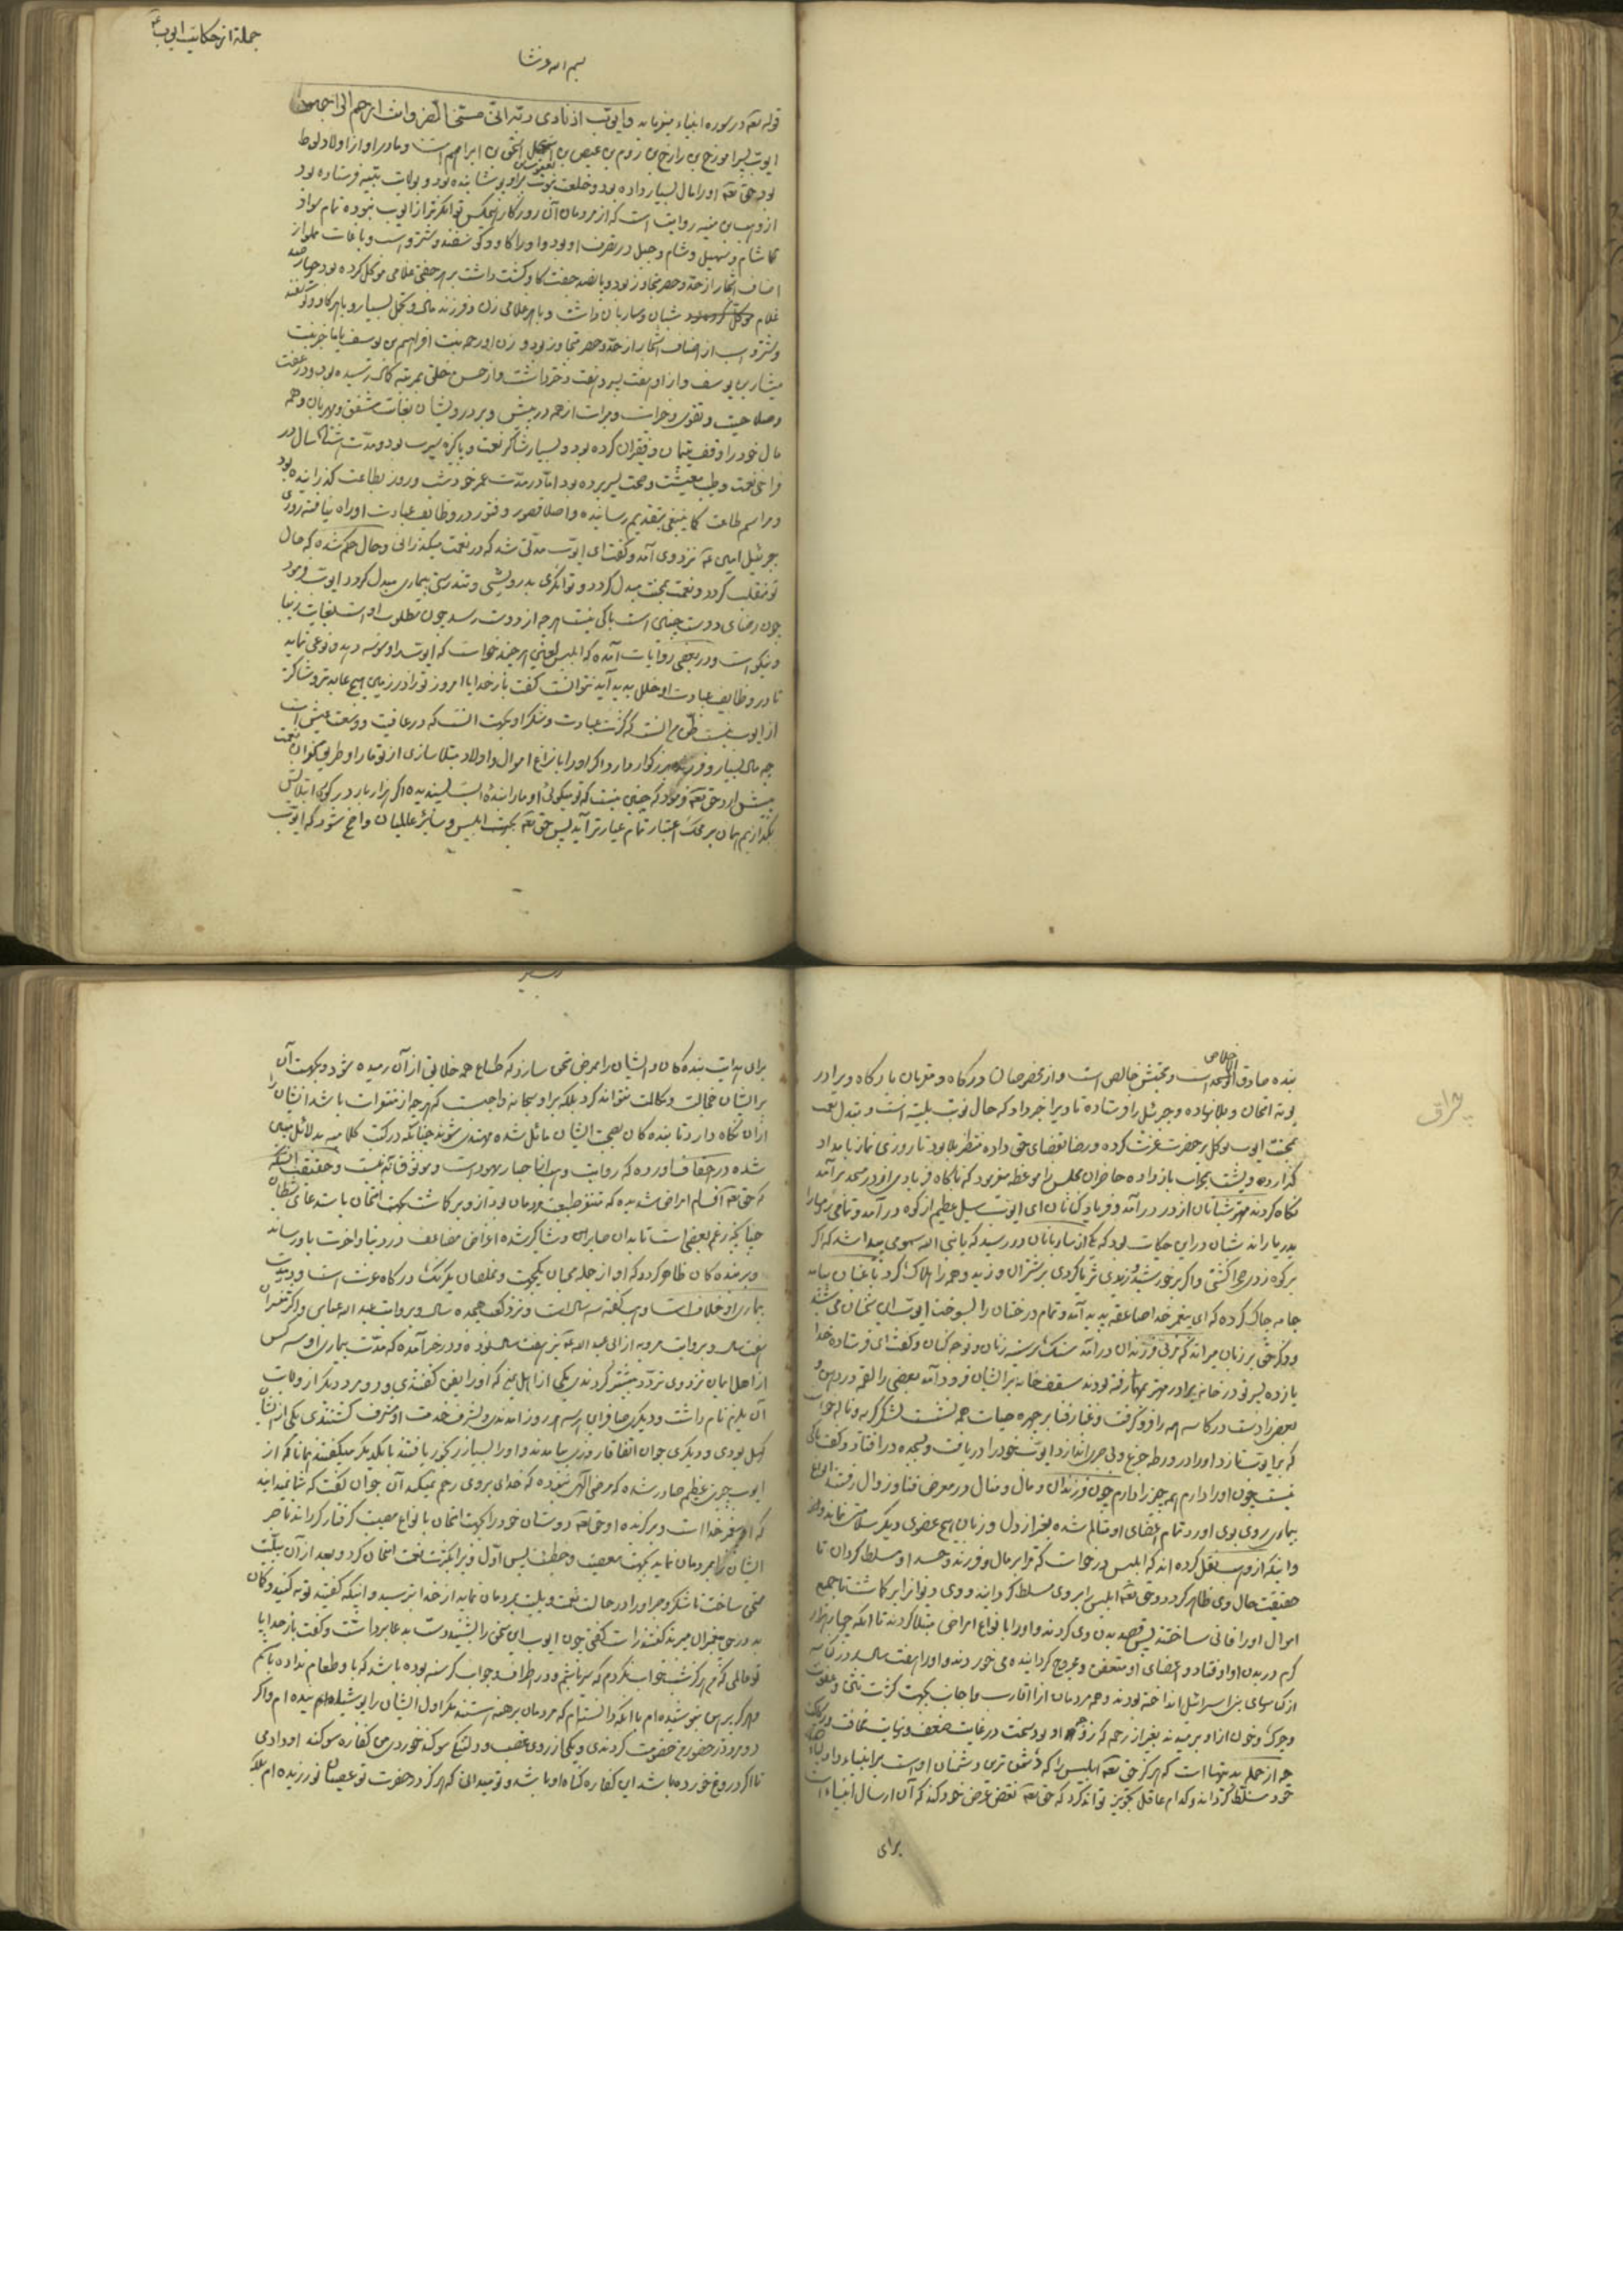 جملة از حکایت ایوب ع
بسم الله وشا
قوله تعه در سوره انبیاء میفرماید وایوب اذ نادی ربه انی مسنی الضر وانت ارحم الراحمین
ایوب پسر اموزخ بن رازخ بن روم بن عیص بن اسحق بن ابراهیم است و مادر او از اولاد لوط
بود حق تعه او را مال بسیار داده بود و خلعت نبوت برو پوشانیده بود و بولایت فرستاده بود
از وهب بن منبه روایت است که از مردمان آن روزگار هیچکس توانگرتر از ایوب نبوده تمام سواد
شام و سهل و جبل در تصرف او بود و او را گاو و گوسفند و شتر و اسب و باغات مملو از
اصناف اشجار از حد و حصر متجاوز بود و پانصد جفت گاو کشت داشت بر هر جفتی غلامی موکل کرده بود چهارصد
غلام شبان و ساربان داشت و با هر غلامی زن و فرزند مال و تجمل بسیار و با هر گاو و گوسفند
و شتر و اسب از اصناف اشجار از حد و حصر متجاوز بود و زن او رحمه بنت افرائیم بن یوسف یا ماخیر بنت
میشا بن یوسف و از او هفت پسر و هفت دختر داشت و از حسن خلق بمرتبه کمال رسیده بود و در عفت
و صلاحیت و تقوی و خیرات و مبرات از همه در پیش و بر درویشان بغایت مشفق و مهربان و همه
مال خود را وقف یتیمان و فقیران کرده بود و بسیار شاکر نعت و پاکیزه سیرت بود و مدت هشتاد سال در
فراخی نعمت و طیب معیشت و صحت بسر برده بود اما در مدت عمر خود شب و روز بطاعت گذرانیده بود
و مراسم طاعت کما ینبغی بتقدیم رسانیده و اصلا قصور و فتور در وظایف عبادت او راه نیافته روزی
جبرئیل امین ع نزد وی آمد و گفت ای ایوب مدتی شد که در نعمت میگذرانی و حال حکم شده که حال
تو منقلب گردد و نعمت بمحنت مبدل گردد و توانگری بدرویشی و تندرستی بیماری مبدل گردد ایوب فرمود
چون رضای دوست چنین است باکی نیست هر چه از دوست رسد چون مطلوب اوست بغایت زیبا
و نیکو است و در بعضی روایات آمده که ابلیس لعین هر چند خواست که ایوب را وسوسه دهد و نوعی نماید
تا در وظایف عبادت او خلل پدید آید نتوانست گفت بار خدایا امروز تو را در زمین هیچ عابدتر و شاکرتر
از ایوب نیست ظن من آنست که کثرت عبادت و شکر او بجهت آنست که در عافیت و وسعت عیش است
چه مال بسیار و فرزند بزرگوار دارد اگر او را بانزاع اموال و اولاد مبتلا سازی از تو مار او طریق کفران نعمت
پیش آرد حق تعه فرمود که چنین نیست که تو میگوئی او ما را بنده ایست پسندیده اگر هزار بار در کوره ابتلایش
بگدازیم همان بر محک اعتبار تمام عیارتر آید پس حق تعه بجهت ابلیس و سایر عالمیان واضح شود که ایوب
بنده صادق الاخلاص است و محبتش خالص است و از مخصوصان درگاه و مقربان بارگاه ویرا در
بوته امتحان و بلا نهاده و جبرئیل را فرستاده تا ویرا خبر داد که حال نوبت بلیه است و تبدل نعمت
بمحنت ایوب توکل بر حضرت عزت کرده و رضا بقضای حق داده منتظر بلا بود تا روزی نماز بامداد
گذارده و پشت بمحراب باز داده حاضران مجلس را موعظه میفرمود که ناگاه فریادی از در مسجد برآمد
نگاه کردند مهتر شبانان از در درآمد و فریاد کنان ای ایوب سیل عظیم از کوه درآمد و تمامی رمها را
بدریا راند شبان در این حکایت بود که یکی از ساربانان در رسید که یا نبی الله سمومی پیدا شد که اگر
بر کوه زدی خراکشتی و اگر بر خورشید وزیدی ثریا کردی بر شتران وزید و همه را هلاک کرد باغبان بیامد
جامه چاک کرده که ای پیغمبر خدا صاعقه پدید آمد و تمام درختان را بسوخت ایوب این سخنان می شنید
و ذکر حق بر زبان میراند که مربی فرزندان درآمد سنگ بر سینه زنان و نوحه کنان و گفت ای فرستاده خدا
یازده پسر تو در خانه برادر مهتر بمهمانی رفته بودند سقف خانه بر ایشان فرود آمد بعضی را لقمه در دهن و
بعضی را دست در کاسه همه را فرو گرفت و غبار فنا بر چهره حیات همه نشست لشکر گریه و ناله خواست
که بر ایوب تازد و او را در ورطه جزع و بی صبری اندازد ایوب خود را دریافت و بسجده در افتاد و گفت باکی
نیست چون او را دارم همه چیز را دارم چون فرزندان و مال و منال در معرض فنا و زوال رفتند انواع
بیماری روی بوی آورد تمام اعضای او متألم شده بغیر از دل و زبان هیچ عضوی دیگر سلامت نمانده
و اینکه از وهب نقل کرده اند که ابلیس درخواست که مرا بر مال و فرزند و جسد او مسلط گردان تا
حقیقت حال وی ظاهر گردد و حق تعه ابلیس را بر وی مسلط گردانید و وی دیوان را بر گماشت تا جمیع
اموال او را فانی ساختند پس قصد بدن وی کردند و او را بانواع امراض مبتلا کردند تا آنکه چهار هزار
کرم در بدن او افتاد و اعضای او متعفن و مجروح گردانیده می خوردند و او را هفت سال در
بنی اسرائیل انداخته بودند و همه مردمان از اقارب و اجانب بجهت کثرت نتن و عفونت
و چرک و خون از او برمیدند بغیر از رحمه که زوجه او بود سخت در غایت ضعف و نهایت
چه از جمله بدیهیات است که هرگز حق تعه ابلیس را که دشمن ترین دشمنان اوست بر انبیاء و اولیاء
خود مسلط گرداند و کدام عاقل تجویز تواند کرد که حق تعه نقض غرض خود کند که آن ارسال انبیاء است
برای
برای هدایت بنده کان و ایشان را بمرضی ممتحن سازد که طباع همه خلایق از آن رمیده شود و بجهت آن
بر ایشان مخالت و مکالمت نتواند کرد بلکه بر او سبحانه واجبست که هر چه از منفرات باشد ایشان را
از آن نگاه دارد تا بنده کان بصحبت ایشان مائل شده مهتدی شوند چنانکه در کتب کلامیه بدلائل مبین
شده و حقیقت آنکه
که حق تعه اقسام امراض شدیده که متنفر طبیعت مردمان بود از وی برگاشت بجهت امتحان یا استدعای شیطان
چنانچه زعم بعضی است تا بدان صابر و شاکر شده اعواض مضاعف در دنیا و آخرت باو رساند
و بر بنده کان ظاهر گردد که او از جمله محبان یکجهت و مخلصان یکرنگ درگاه عزت است و در مدت
بیماری او خلاف است وهب گفته سه سال است و نزد کعب هیجده سال و بروایت عبد الله عباس و اکثر مفسران
هفت سال و بروایت مرویه از ابی عبد الله ع نیز هفت سال بوده و در خبر آمده که مدت بیماری او سه کس
از اهل ایمان نزد وی تردد بیشتر کردندی یکی از اهل یمن که او را یفن گفتندی و دو مرد دیگر از ولایت
آن یلزم نام داشت و دیگری صافر این هر سه هر روز آمدندی و بشرف خدمت او مشرف گشتندی یکی از ایشان
کهل بودی و دیگری جوان اتفاقا روزی بیامدند و او را بسیار رنجور یافتند با یکدیگر میگفتند همانا که از
ایوب جرمی عظیم صادر شده که مرضی الهی نبوده که خدای بر وی رحم نمیکند آن جوان گفت که شما نمیدانید
که او پیغمبر خدا است و برگزیده او حق تعه دوستان خود را بجهت امتحان بانواع مصیبت گرفتار گرداند تا صبر
ایشان را بمردمان نماید بجهت معصیت و خطیئه پس اول ویرا بکثرت نعمت امتحان کرد و بعد از آن ببلیت
ممتحن ساخت تا شکر و صبر او را در حالت نعمت و بلیت بمردمان نماید از خدا بترسید و اینکه گفتید توبه کنید و گمان
بد در حق پیغمبران مبرید گفتند راست گفتی چون ایوب این سخن را بشنید دست بدعا برداشت و گفت بار خدایا
تو عالمی که من هرگز شب خواب نکردم که سیر باشم و در اطراف و جوانب گرسنه بوده باشد که باو طعام نداده باشم
و هرگز پیراهن نپوشیده ام با آنکه دانسته ام که مردمان برهنه هستند مگر اول ایشان را پوشانیده ام و اگر
دو مرد در حضور من خصومت کردندی و یکی از روی غضب و دلتنگی سوگند خوردی من کفاره سوگند او دادمی
تا اگر دروغ خورده باشد این کفاره گناه او باشد و تو میدانی که هرگز در حضرت تو عصیان نورزیده ام بلکه